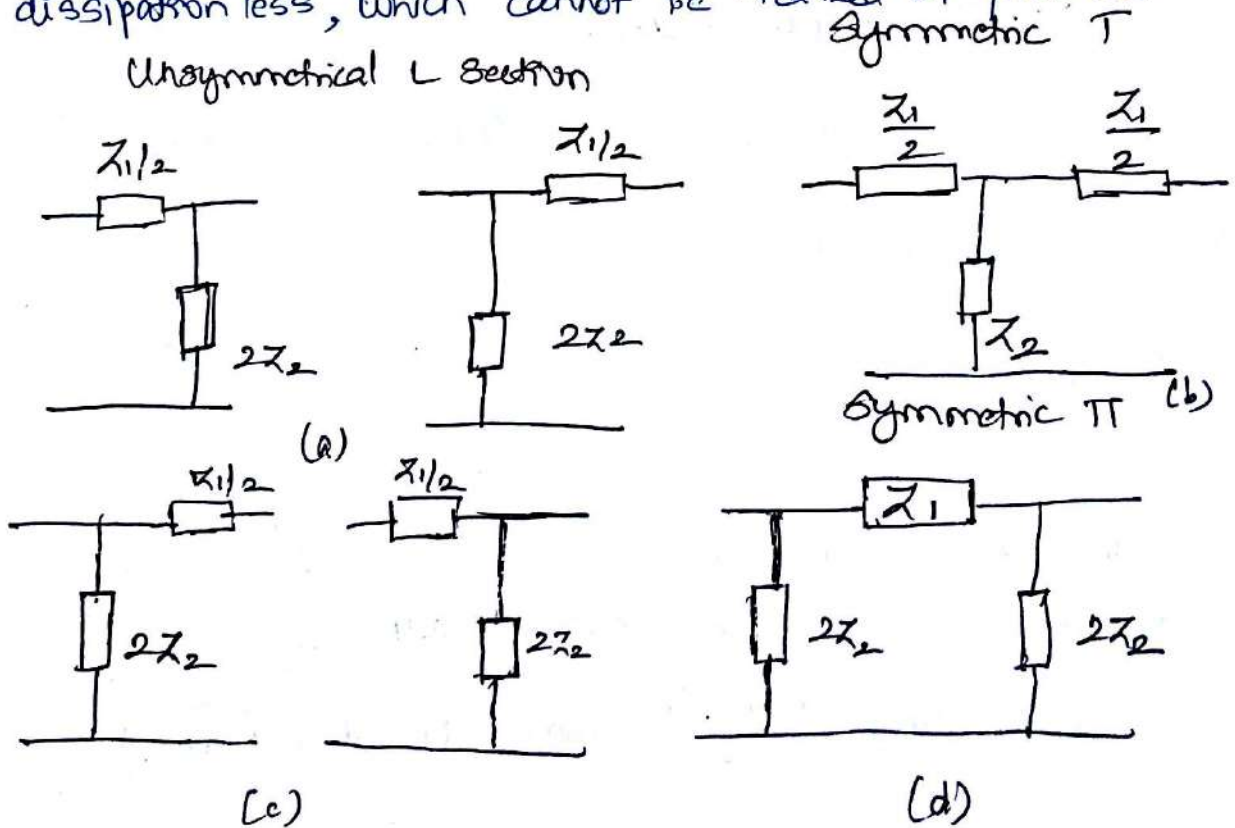 dissipationless, which cannot be
Symmetric T
Unsymmetrical L Section
Z1/2
Z1/2
Z1
2
Z1
2
2Z2
2Z2
Z2
(a)
(b)
Symmetric π
Z1/2
Z1/2
Z1
2Z2
2Z2
2Z2
2Z2
(c)
(d)